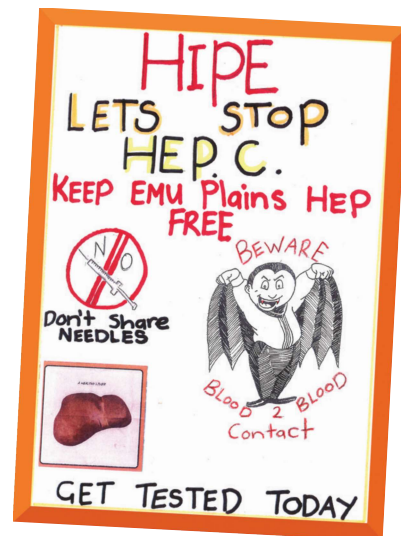 HIPE
LETS STOP
HEP. C.
KEEP EMU Plains HEP
FREE
NO
Don't Share
NEEDLES
BEWARE
BLOOD 2 BLOOD
Contact
A HEALTHY LIVER
GET TESTED TODAY